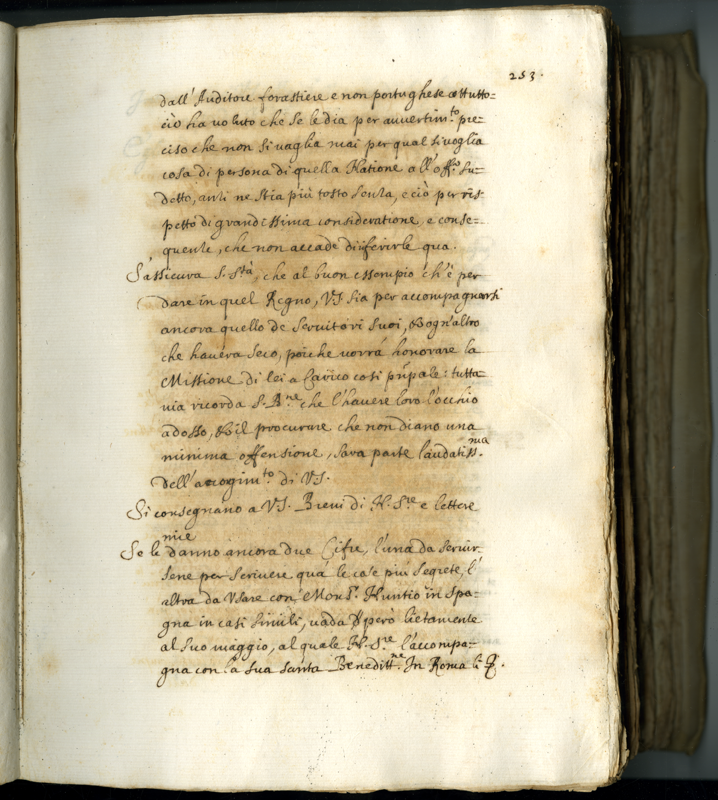 253.
dall'Auditore forastiere e non portughese et tutto=
ciò ha voluto che se le dia per avvertim.to pre=
ciso che non si vaglia mai per qual si voglia
cosa di persona di quella Natione all'off.o su=
detto, anzi ne stia più tosto senza, e ciò per ris=
petto di grandissima consideratione, e conse=
quente, che non accade di riferirle qua.
S'assicura S. S.tà, che al buon essempio ch'è per
dare in quel Regno, V.S. sia per accompagnarsi
ancora quello de Servitori suoi, et ogn'altro
che haverà seco, poiche vorrà honorare la
Missione di lei a Carico così prñpale: tutta=
via ricorda S. B.ne che l'havere loro l'occhio
adosso, et il procurare che non diano una
minima offensione, sarà parte laudatiss.ma
dell'accogim.to di V.S.
Si consegnano a V.S. Brevi di N. S.re e lettere
mie
Se le danno ancora due Cifre, l'una da servir=
sene per scrivere quà le cose più segrete, l'
altra da usare con Mons.r Nuntio in Spa=
gna in casi simili, vada però lietamente
al suo viaggio, al quale N. S.re l'accompa=
gna con la sua santa Beneditt.ne In Roma li